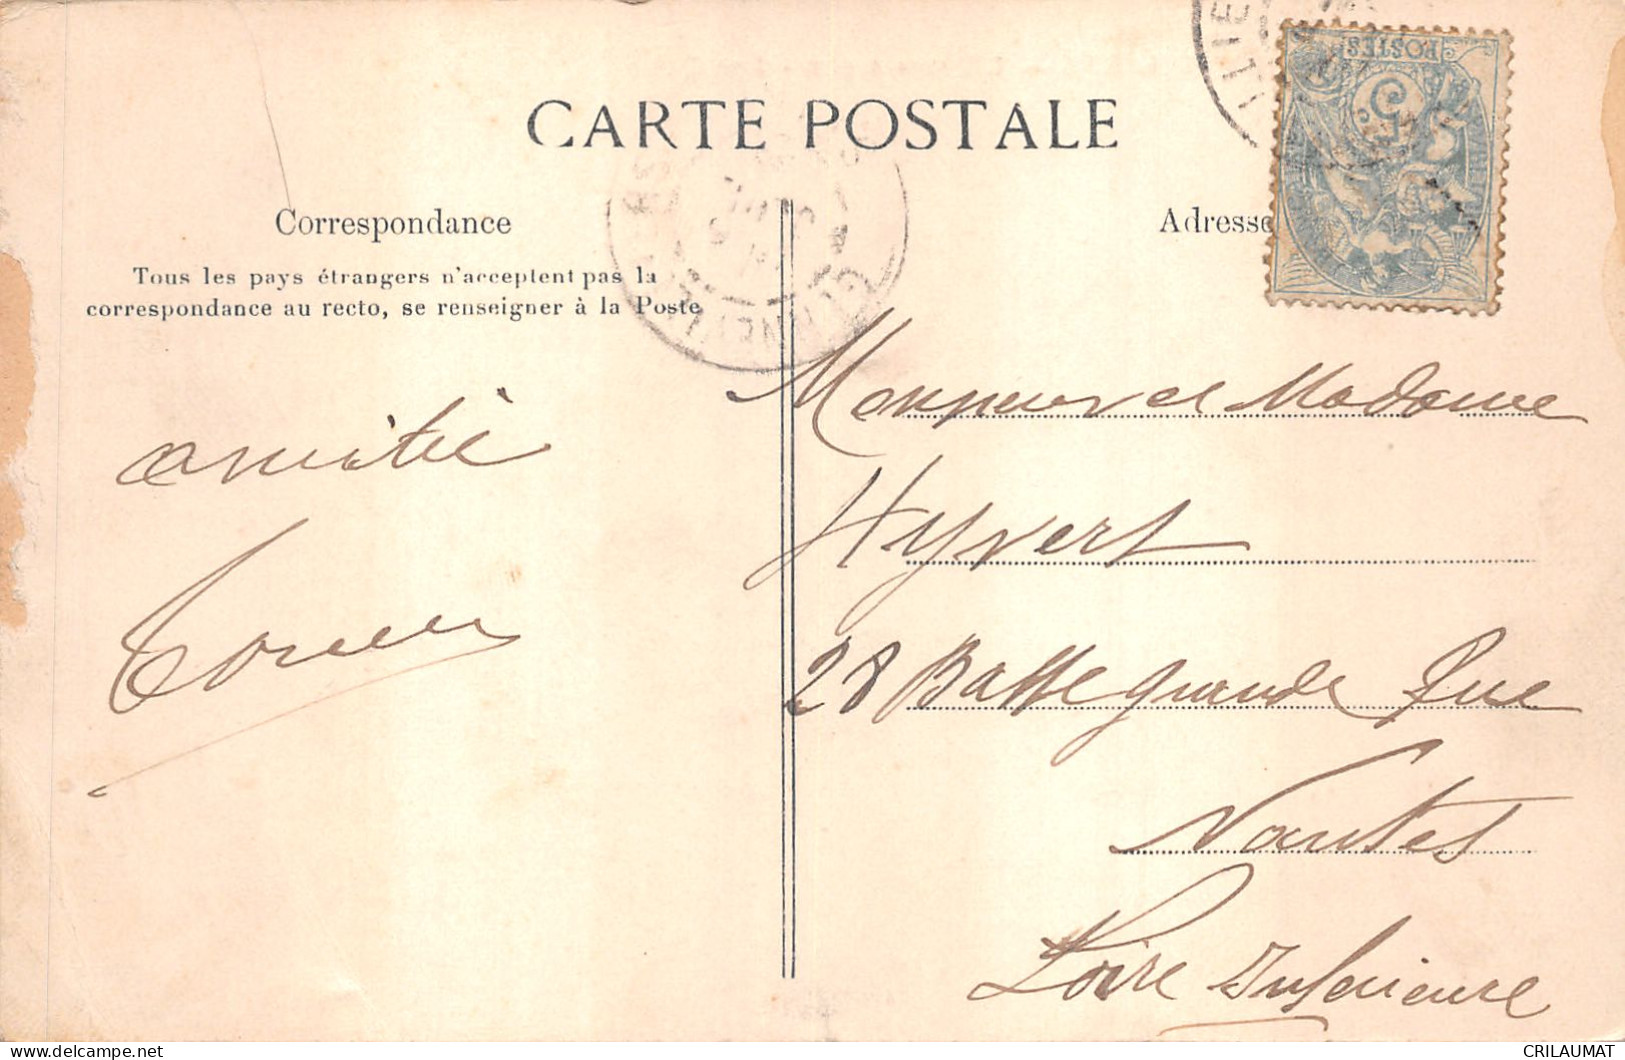 CARTE POSTALE
Correspondance
Tous les pays étrangers n'acceptent pas la
correspondance au recto, se renseigner à la Poste
Adresse
POSTES
5
amitié
Monsieur et Madame
Hyvert
28 Basse grande Rue
Nantes
Loire Inférieure
CRILAUMAT